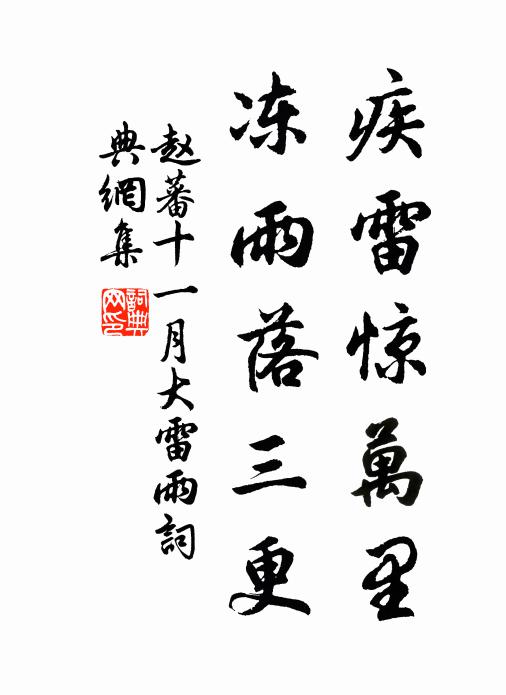 疾雷惊萬里
冻雨落三更
赵蕃十一月大雷雨詞
典網集
詞典
网印